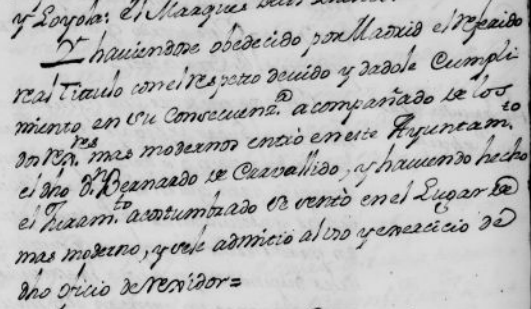 y Loyola: el Marques
Y haviendose obedecido por Madrid el referido
real Titulo con el respeto devido y dadole Cumpli
miento en su Consecuenz.ª acompañado de los
dos rex.res mas modernos entró en este Ayuntam.to
el dho D.n Bernardo de Caravallido, y haviendo hecho
el Juram.to acostumbrado se sentò en el Lugar de
mas moderno, y se le admitio al uso y exercicio de
dho oficio de rexidor=